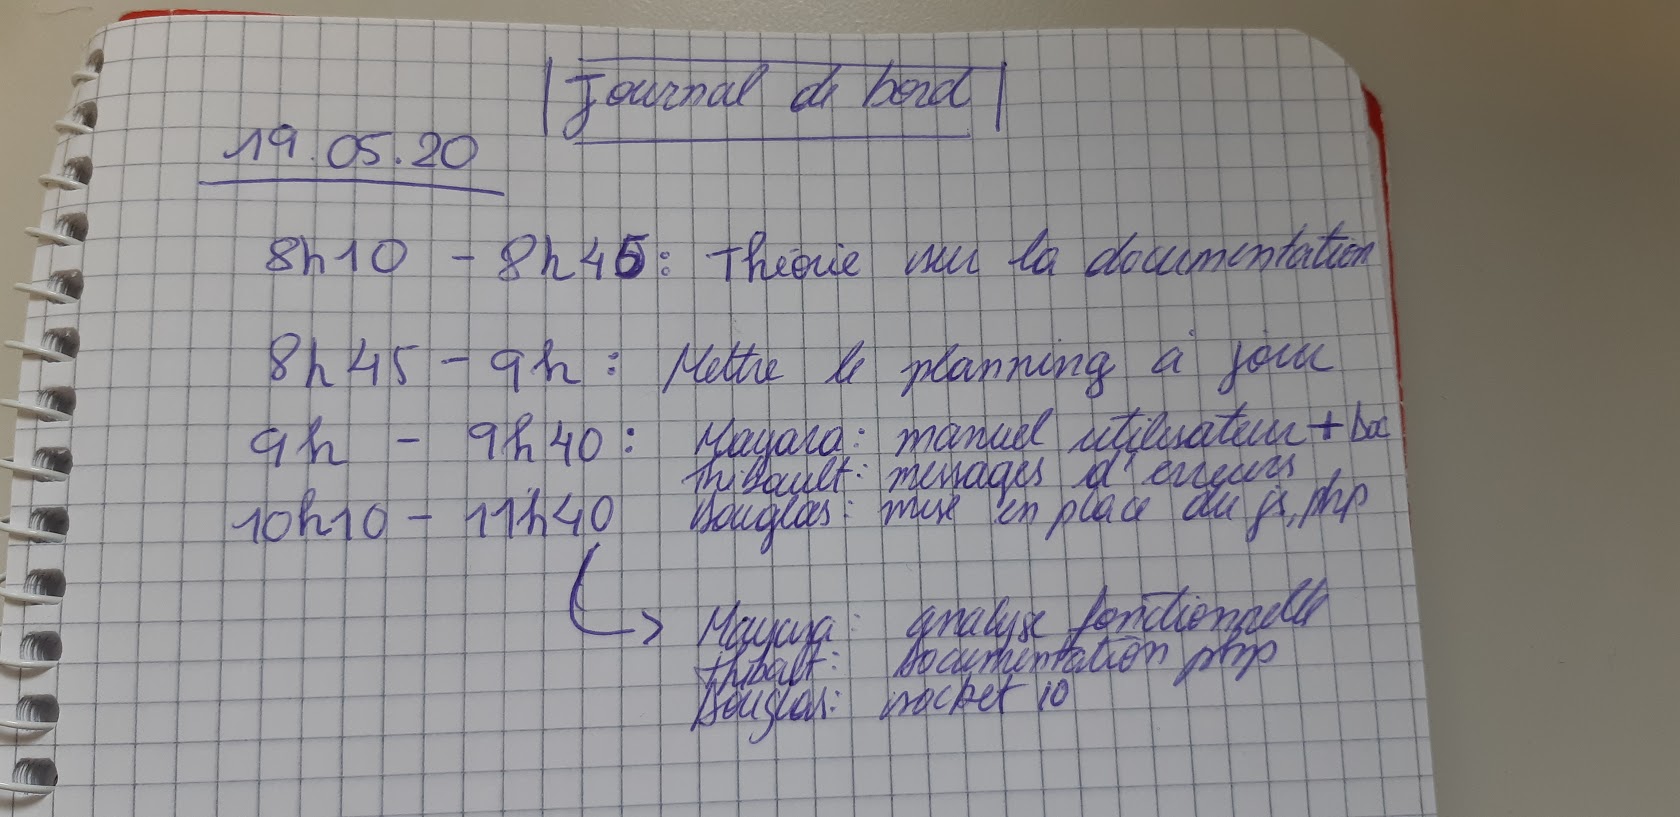 Journal de bord
19.05.20
8h10 - 8h45: Théorie sur la documentation
8h45 - 9h: Mettre le planning à jour
9h - 9h40: Mayara: manuel utilisateur + Doc
Thibault: messages d'erreurs
10h10 - 11h40 Douglas: mise en place du js, php
Mayara: analyse fonctionnelle
Thibalt: Documentation php
Douglas: socket io